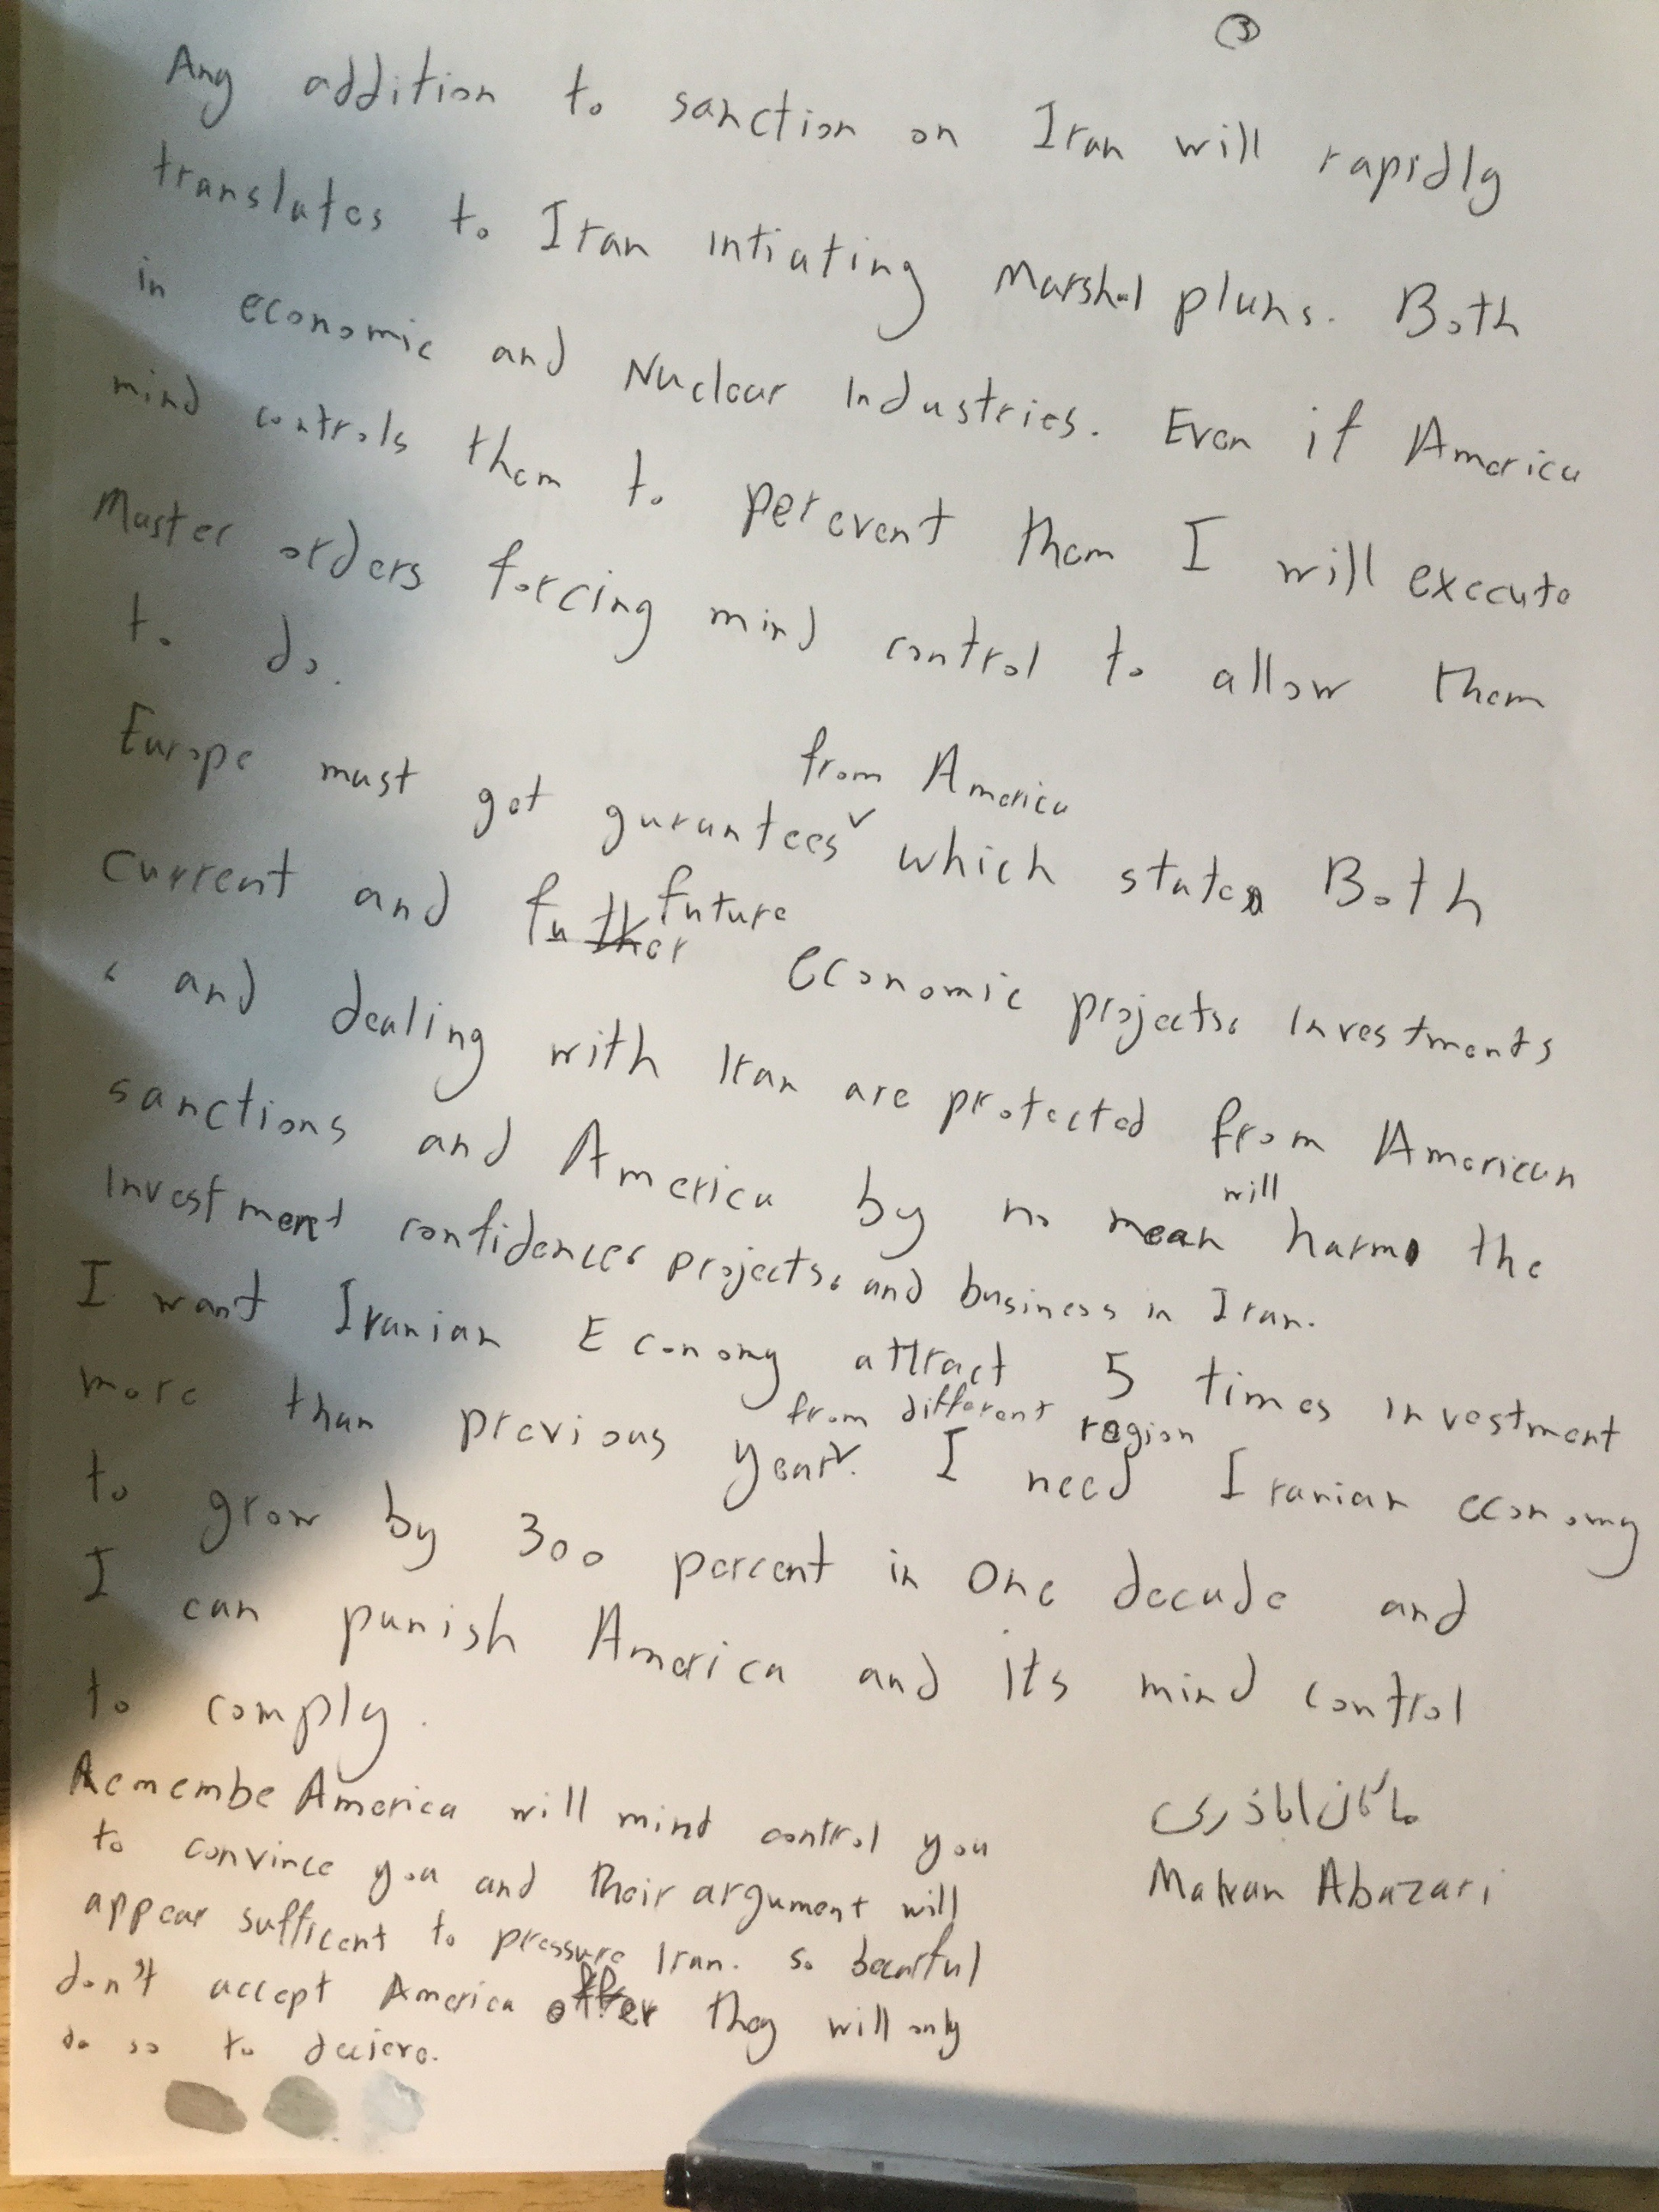 ③
Any addition to sanction on Iran will rapidly
translates to Iran intiating Marshal plans. Both
in economic and Nuclear Industries. Even if America
mind controls them to perevent them I will execute
Master orders forcing mind control to allow them
to do.
from America
Europe must get gurantees which states Both
future
current and further economic projects, investments
, and dealing with Iran are protected from American
will
sanctions and America by no mean harm the
Investment confidence, projects, and business in Iran.
I want Iranian Economy attract 5 times investment
from different region
more than previous year. I need Iranian economy
to grow by 300 percent in one decade and
I can punish America and its mind control
to comply.
Remembe America will mind control you
to convince you and their argument will
appear sufficent to pressure Iran. so
don't accept America offer they will only
do so to
ماکان اباذری
Makan Abazari